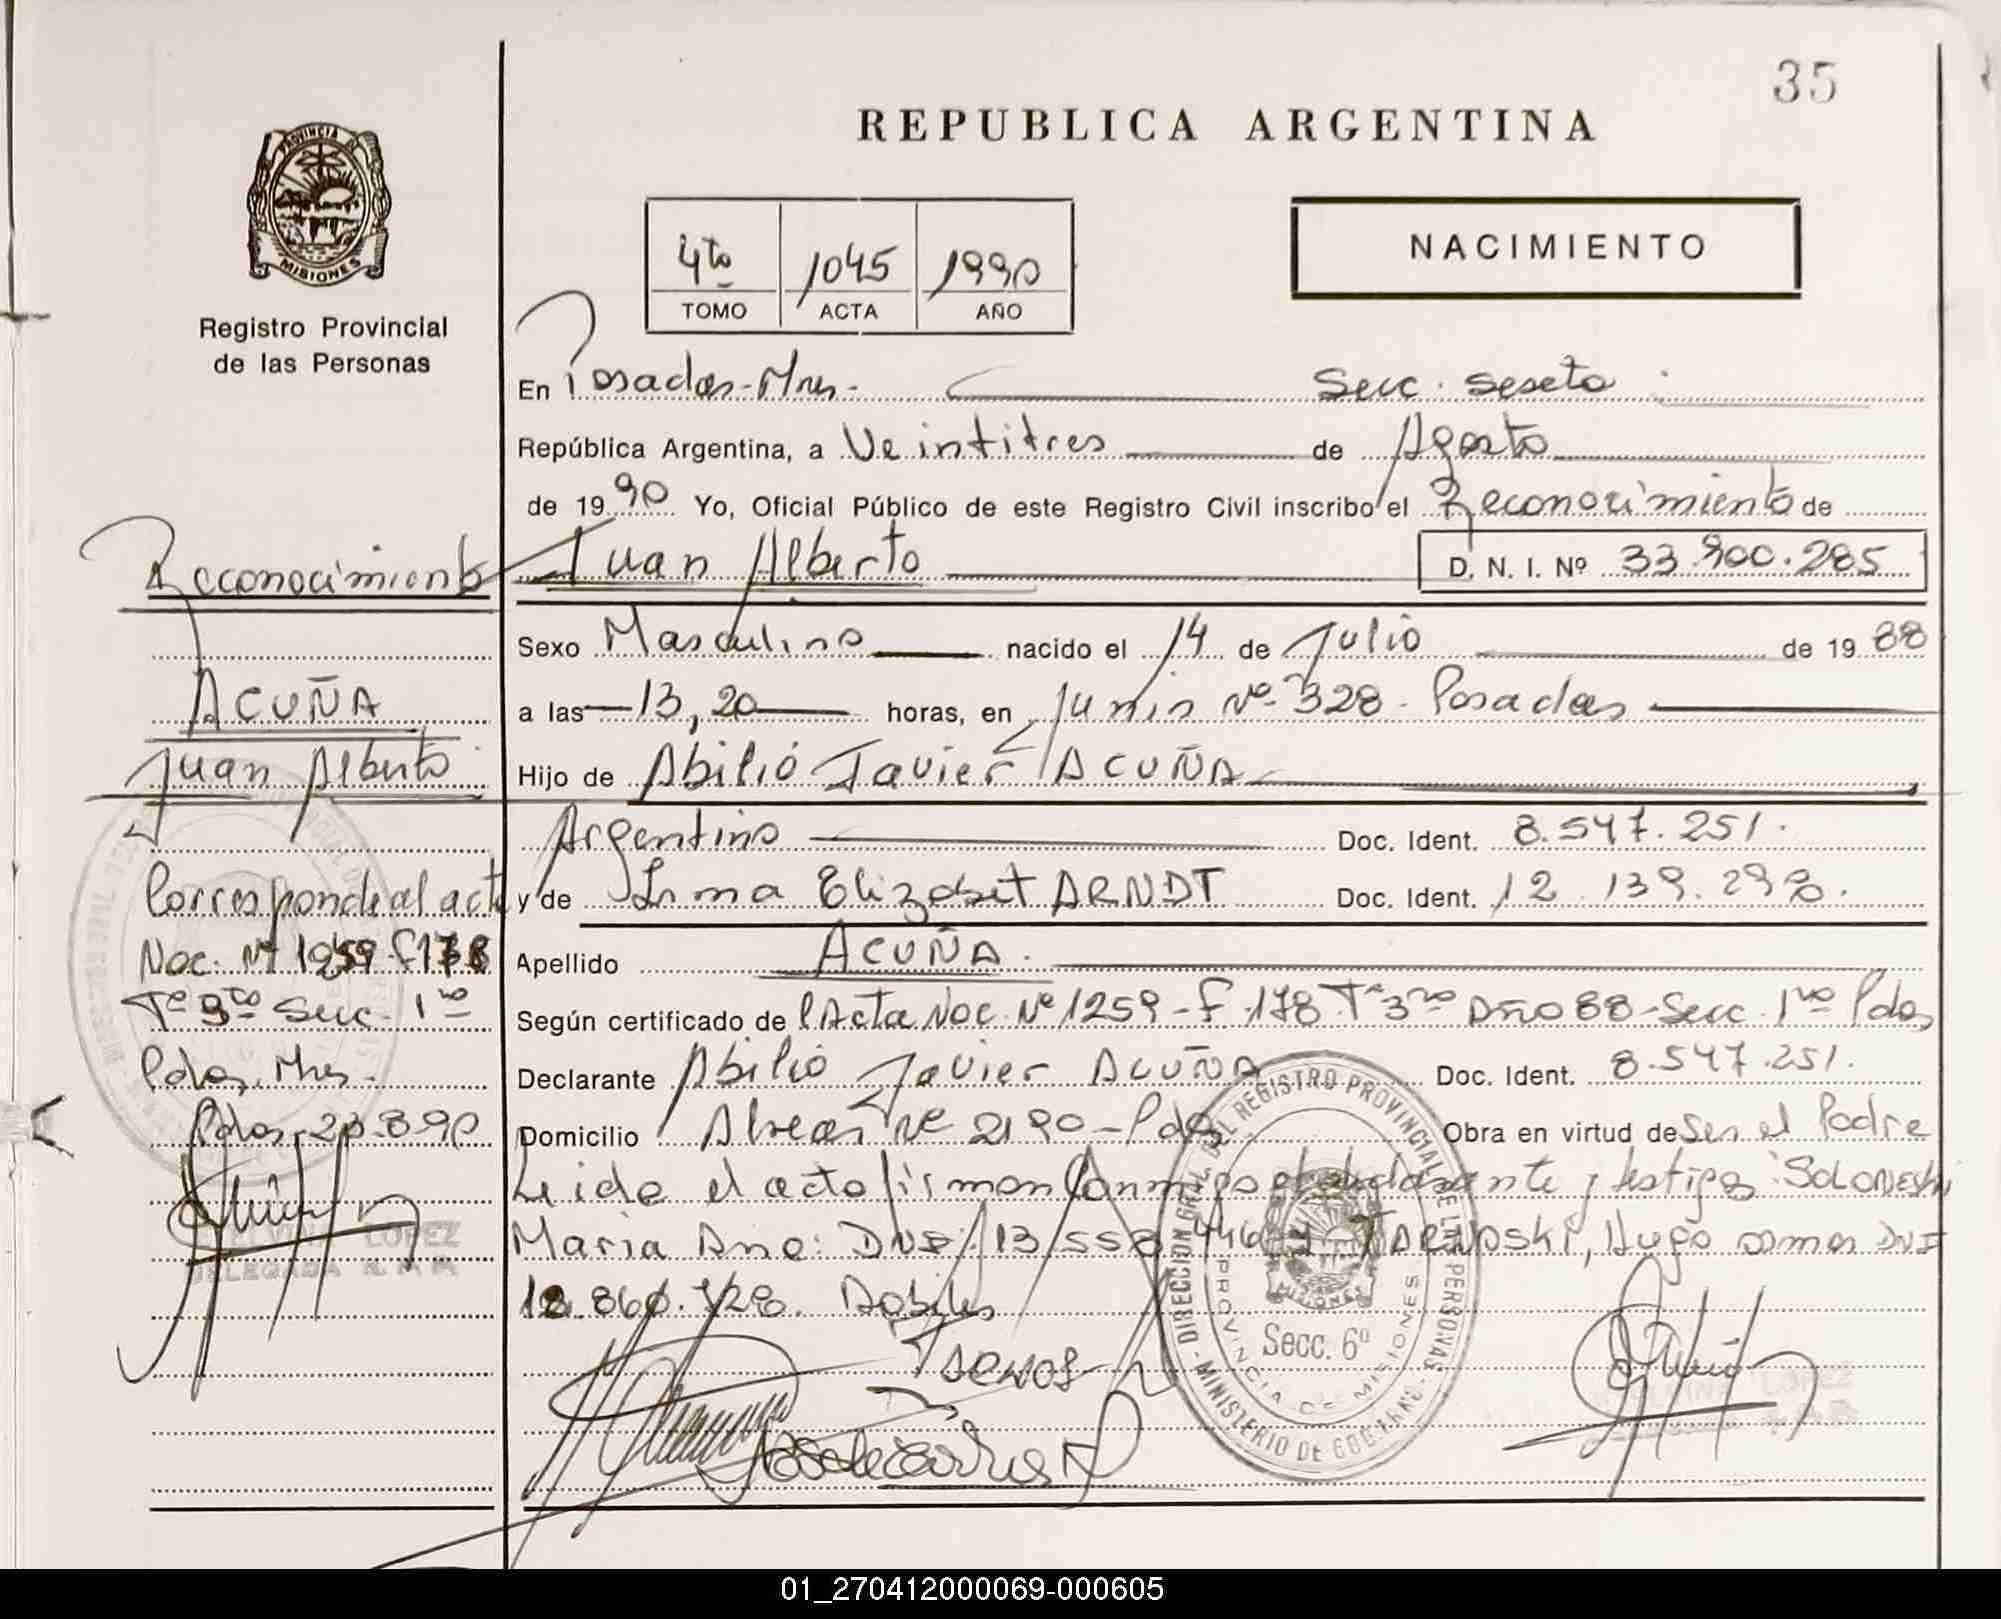 35
REPUBLICA ARGENTINA
PROVINCIA DE
MISIONES
Registro Provincial
de las Personas
4to 1045 1990
TOMO ACTA AÑO
NACIMIENTO
En Posadas-Mnes.- Secc. sexta
República Argentina, a Veintitres de Agosto
de 1990 Yo, Oficial Público de este Registro Civil inscribo el Reconocimiento de
Juan Alberto D. N. I. Nº 33.900.285
Sexo Masculino nacido el 14 de Julio de 1988
a las 13,20 horas, en Junin Nº 328 - Posadas
Hijo de Abilio Javier ACUÑA
Argentino Doc. Ident. 8.547.251.
y de Irma Elizabet ARNDT Doc. Ident. 12.139.298.
Apellido ACUÑA.
Según certificado de Acta Nac. Nº 1259 - F 178 Tº 3ro Año 88 - Secc. 1ra Pdas
Declarante Abilio Javier ACUÑA Doc. Ident. 8.547.251.
Domicilio Nº 2190 - Pdas Obra en virtud de Ser el Padre
Leido el acta firman Conmigo el declarante y testigos
Maria Ana: DNI 13.558.446 y Hugo DNI
Reconocimiento
ACUÑA
Juan Alberto
Corresponde al acta
Nac. Nº 1259 - F 178
Tº 3ro Secc. 1ra
Pdas, Mnes.
Pdas, 23.8.90
LOPEZ
DELEGADA
DIRECCION GRAL. DEL REGISTRO PROVINCIAL DE LAS PERSONAS
MINISTERIO DE GOBIERNO
PROVINCIA DE MISIONES
MISIONES
Secc. 6º
LOPEZ
01_270412000069-000605